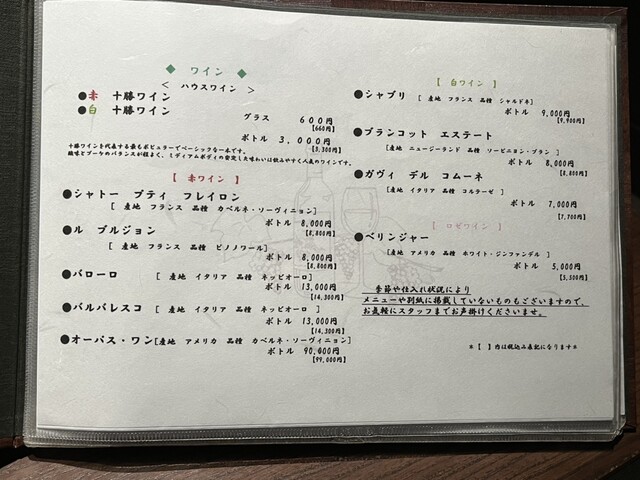 ◆ ワイン ◆
< ハウスワイン >
●赤 十勝ワイン
●白 十勝ワイン
グラス 600円
【660円】
ボトル 3,000円
【3,300円】
十勝ワインを代表する最もポピュラーでベーシックな一本です。
酸味とブーケのバランスが程よく、ミディアムボディの安定した味わいは飲みやすく人気のワインです。
【 赤ワイン 】
●シャトー プティ フレイロン
[ 産地 フランス 品種 カベルネ・ソーヴィニョン]
ボトル 8,000円
【8,800円】
●ル プルジョン
[ 産地 フランス 品種 ピノノワール]
ボトル 8,000円
【8,800円】
●バローロ [ 産地 イタリア 品種 ネッビオーロ]
ボトル 13,000円
【14,300円】
●バルバレスコ [ 産地 イタリア 品種 ネッビオーロ]
ボトル 13,000円
【14,300円】
●オーパス・ワン[産地 アメリカ 品種 カベルネ・ソーヴィニョン]
ボトル 90,000円
【99,000円】
【 白ワイン 】
●シャブリ [ 産地 フランス 品種 シャルドネ]
ボトル 9,000円
【9,900円】
●ブランコット エステート
[産地 ニュージーランド 品種 ソービニョン・ブラン]
ボトル 8,000円
【8,800円】
●ガヴィ デル コムーネ
[産地 イタリア 品種 コルテーゼ]
ボトル 7,000円
【7,700円】
【 ロゼワイン 】
●ベリンジャー
[産地 アメリカ 品種 ホワイト・ジンファンデル]
ボトル 5,000円
【5,500円】
季節や仕入れ状況により
メニューや別紙に掲載していないものもございますので、
お気軽にスタッフまでお声掛けくださいませ。
*【 】内は税込み表記になります*